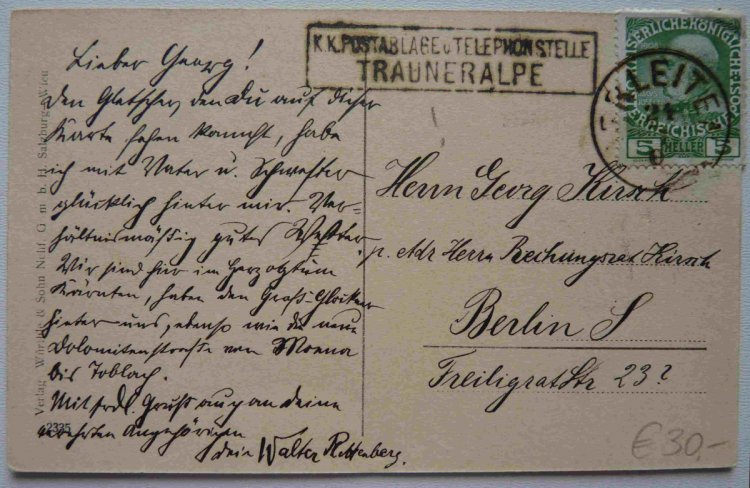 K.K. POSTABLAGE u TELEPHONSTELLE
TRAUNERALPE
KAISERLICHEKÖNIGLICHE
ÖSTERREICHISCHE
5 HELLER 5
Lieber Georg!
den Gletscher, den Du auf dieser
Karte sehen kannst, habe
ich mit Vater u. Schwester
glücklich hinter mir. Ver-
hältnismäßig gutes Wetter.
Wir sind hier im Herzogtum
Kärnten, haben den Groß-Glockner
hinter uns, ebenso wie die neue
Dolomitenstraße von Moena
bis Toblach.
Mit frdl. Gruß auch an deine
verehrten Angehörigen
dein Walter Rottenberg.
Herrn Georg Kirsch
p. Adr Herrn Rechnungsrat Kirsch
Berlin S
Freiligrat Str 23?
Verlag Würthle & Sohn Nchf. G. m. b. H. Salzburg-Wien
2335
€30,-